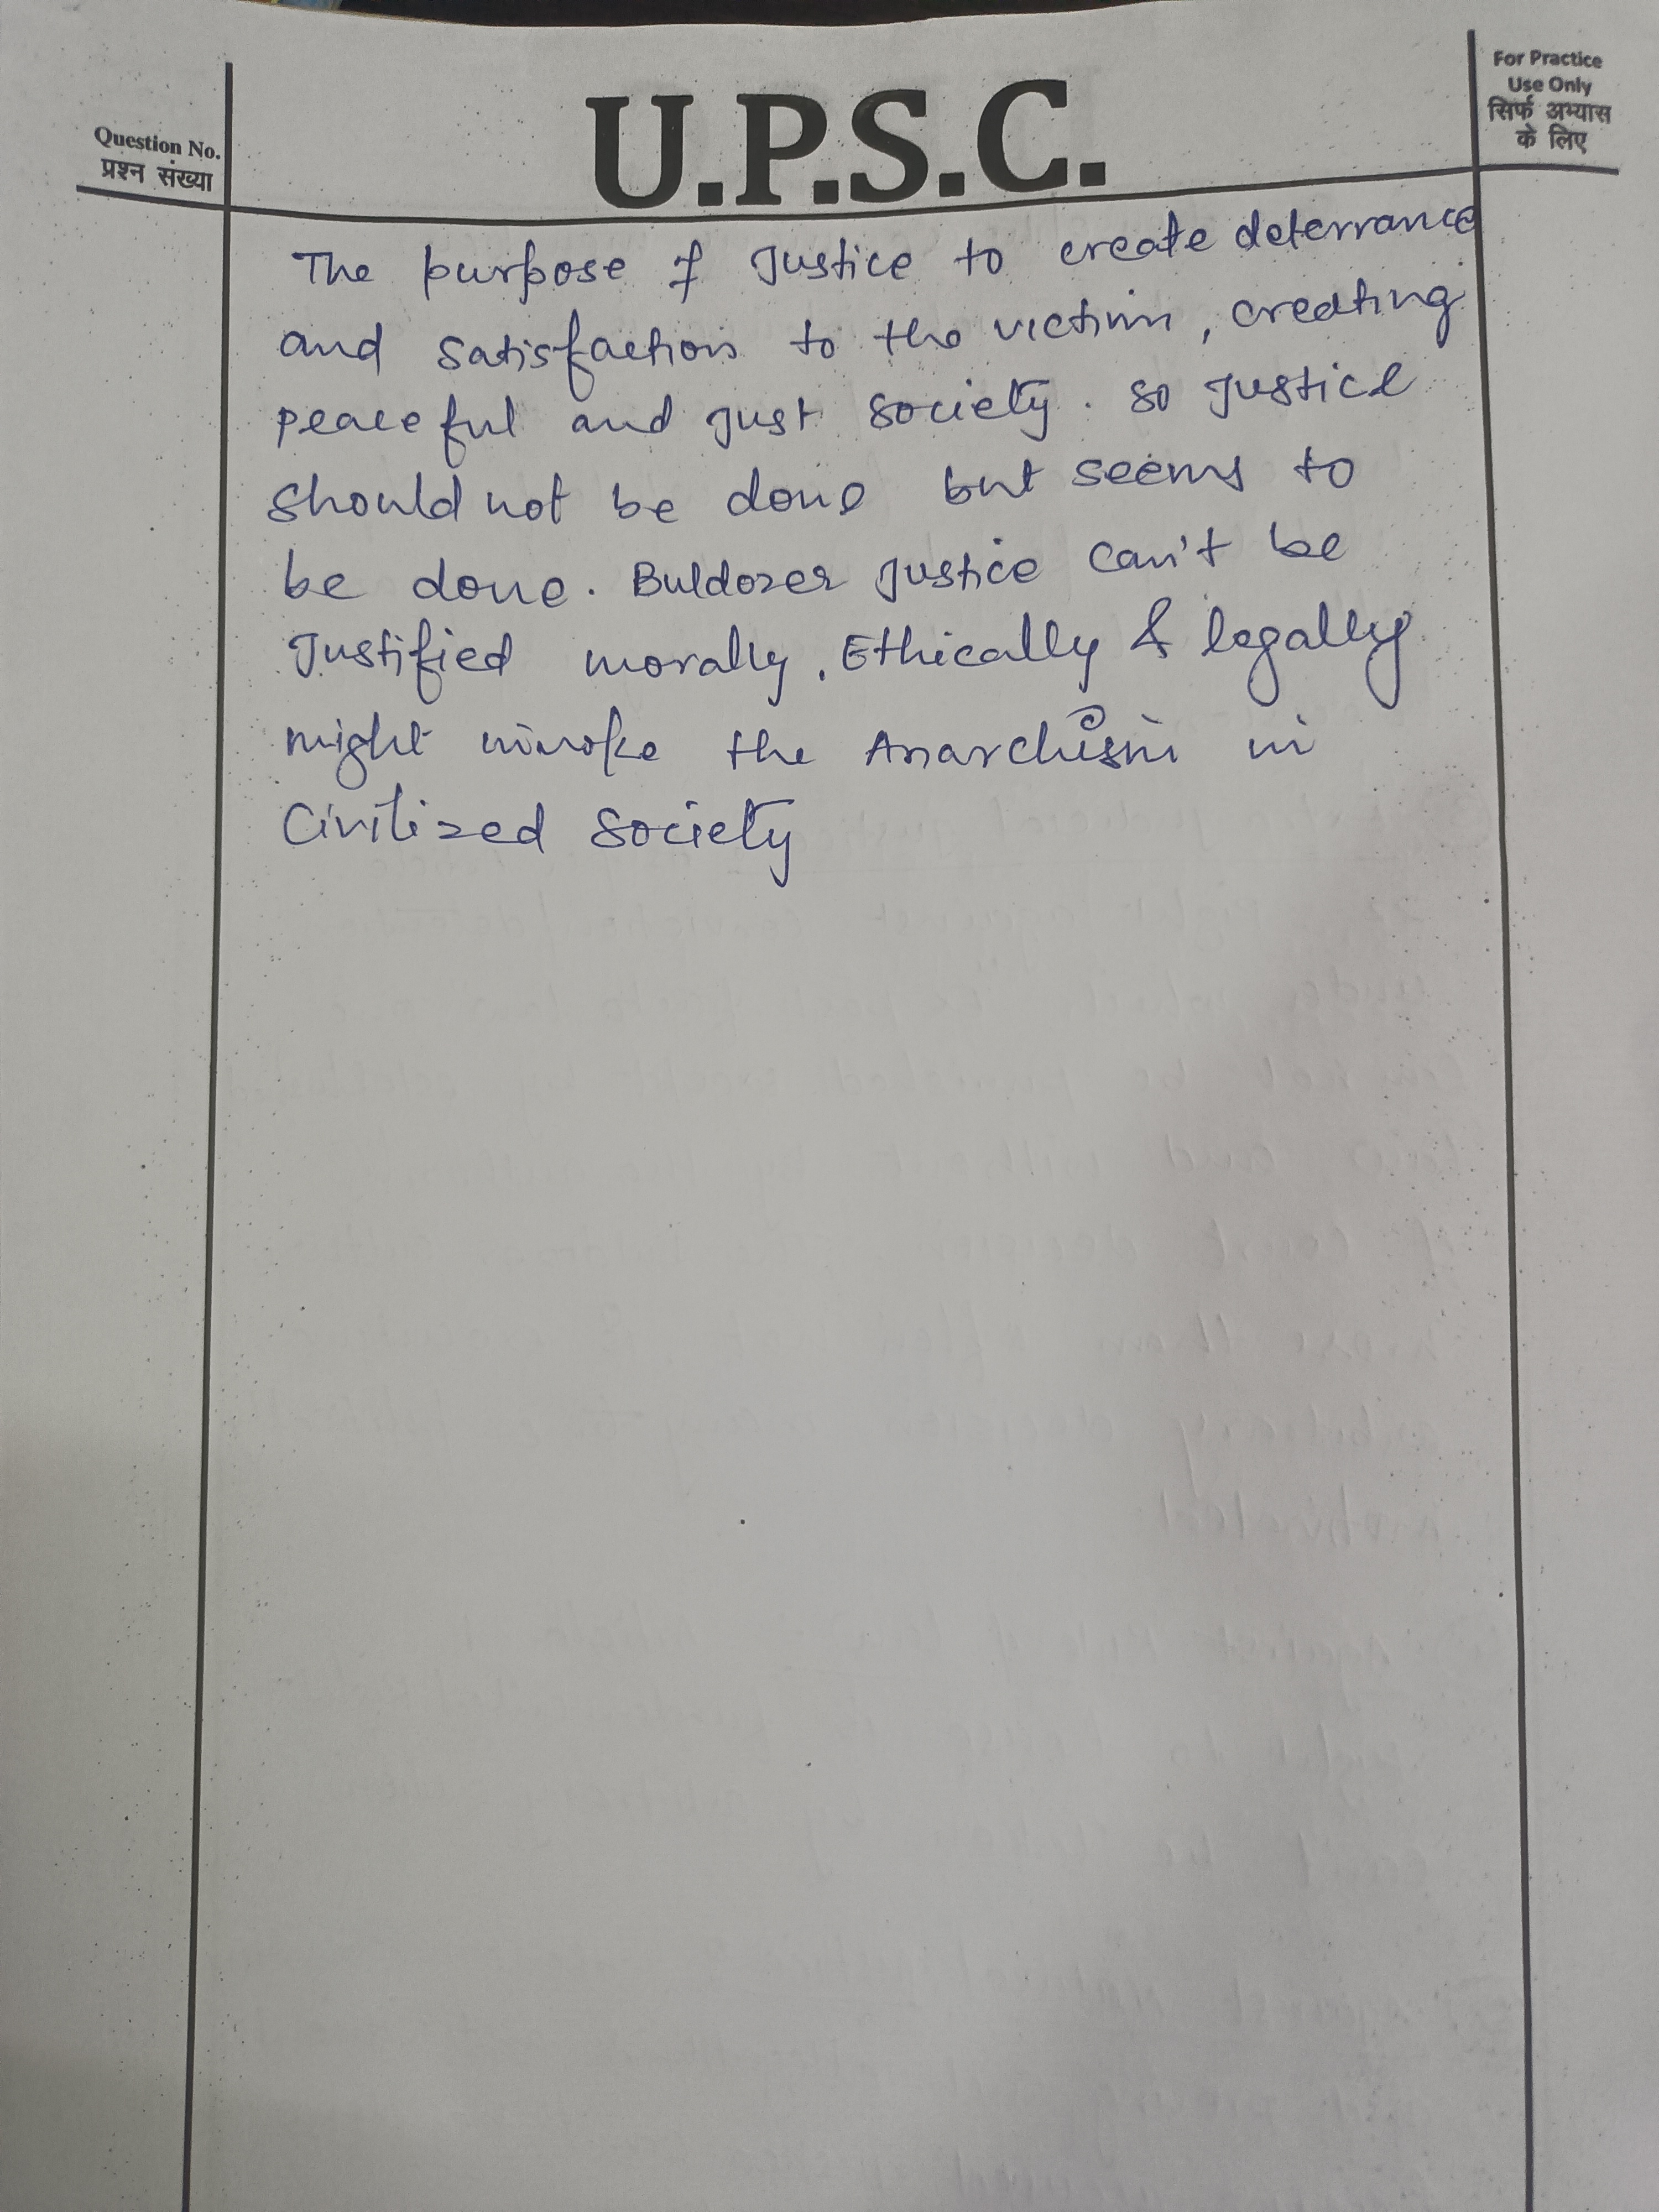 Question No.
प्रश्न संख्या
U.P.S.C.
For Practice
Use Only
सिर्फ अभ्यास
के लिए
The purpose of Justice to create deterrance
and satisfaction to the victim, creating
peaceful and just society. so justice
should not be done but seems to
be done. Buldozer justice can't be
Justified morally, Ethically & legally
might invoke the Anarchism in
Civilized society